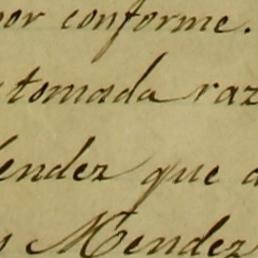 por conforme.
tomada raz
endez que a
s Mendez